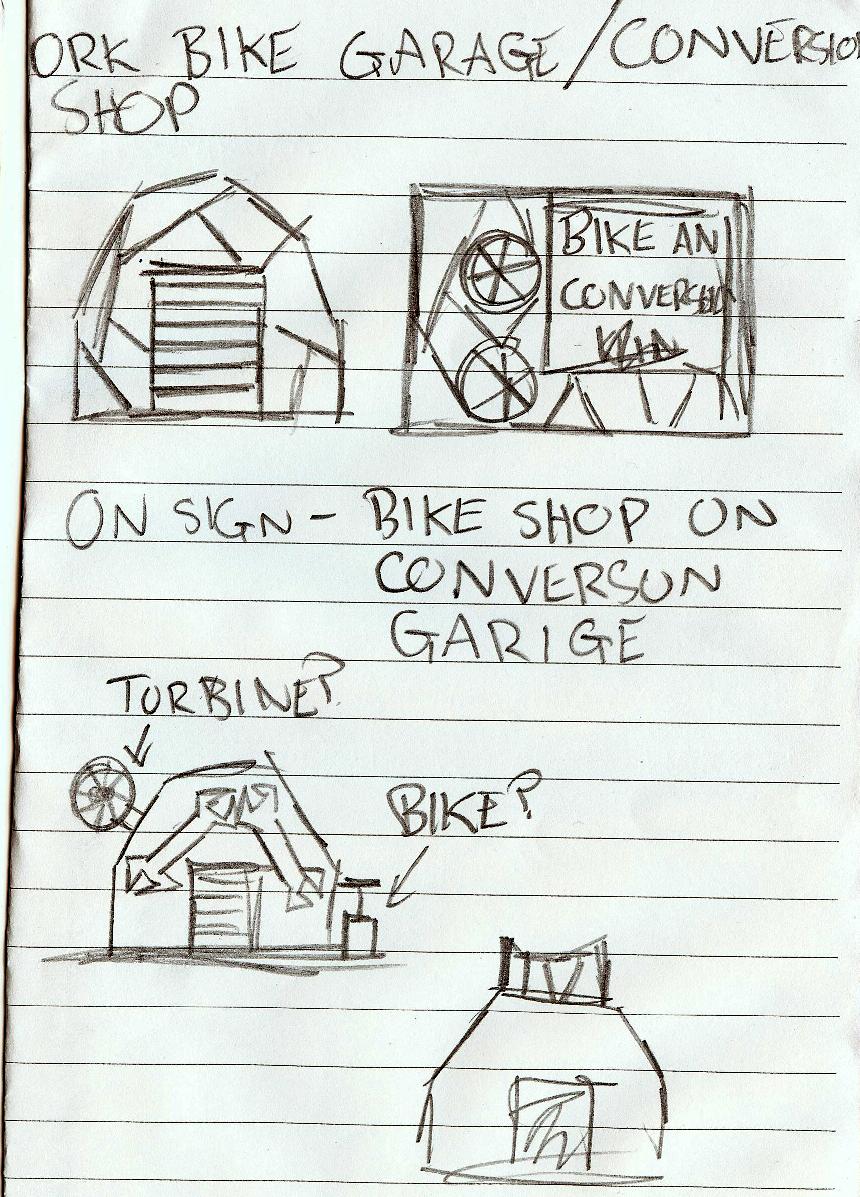 ORK BIKE GARAGE/CONVERSION
SHOP
BIKE AN
CONVERSION
ON SIGN - BIKE SHOP ON
CONVERSUN
GARIGE
TURBINE?
BIKE?